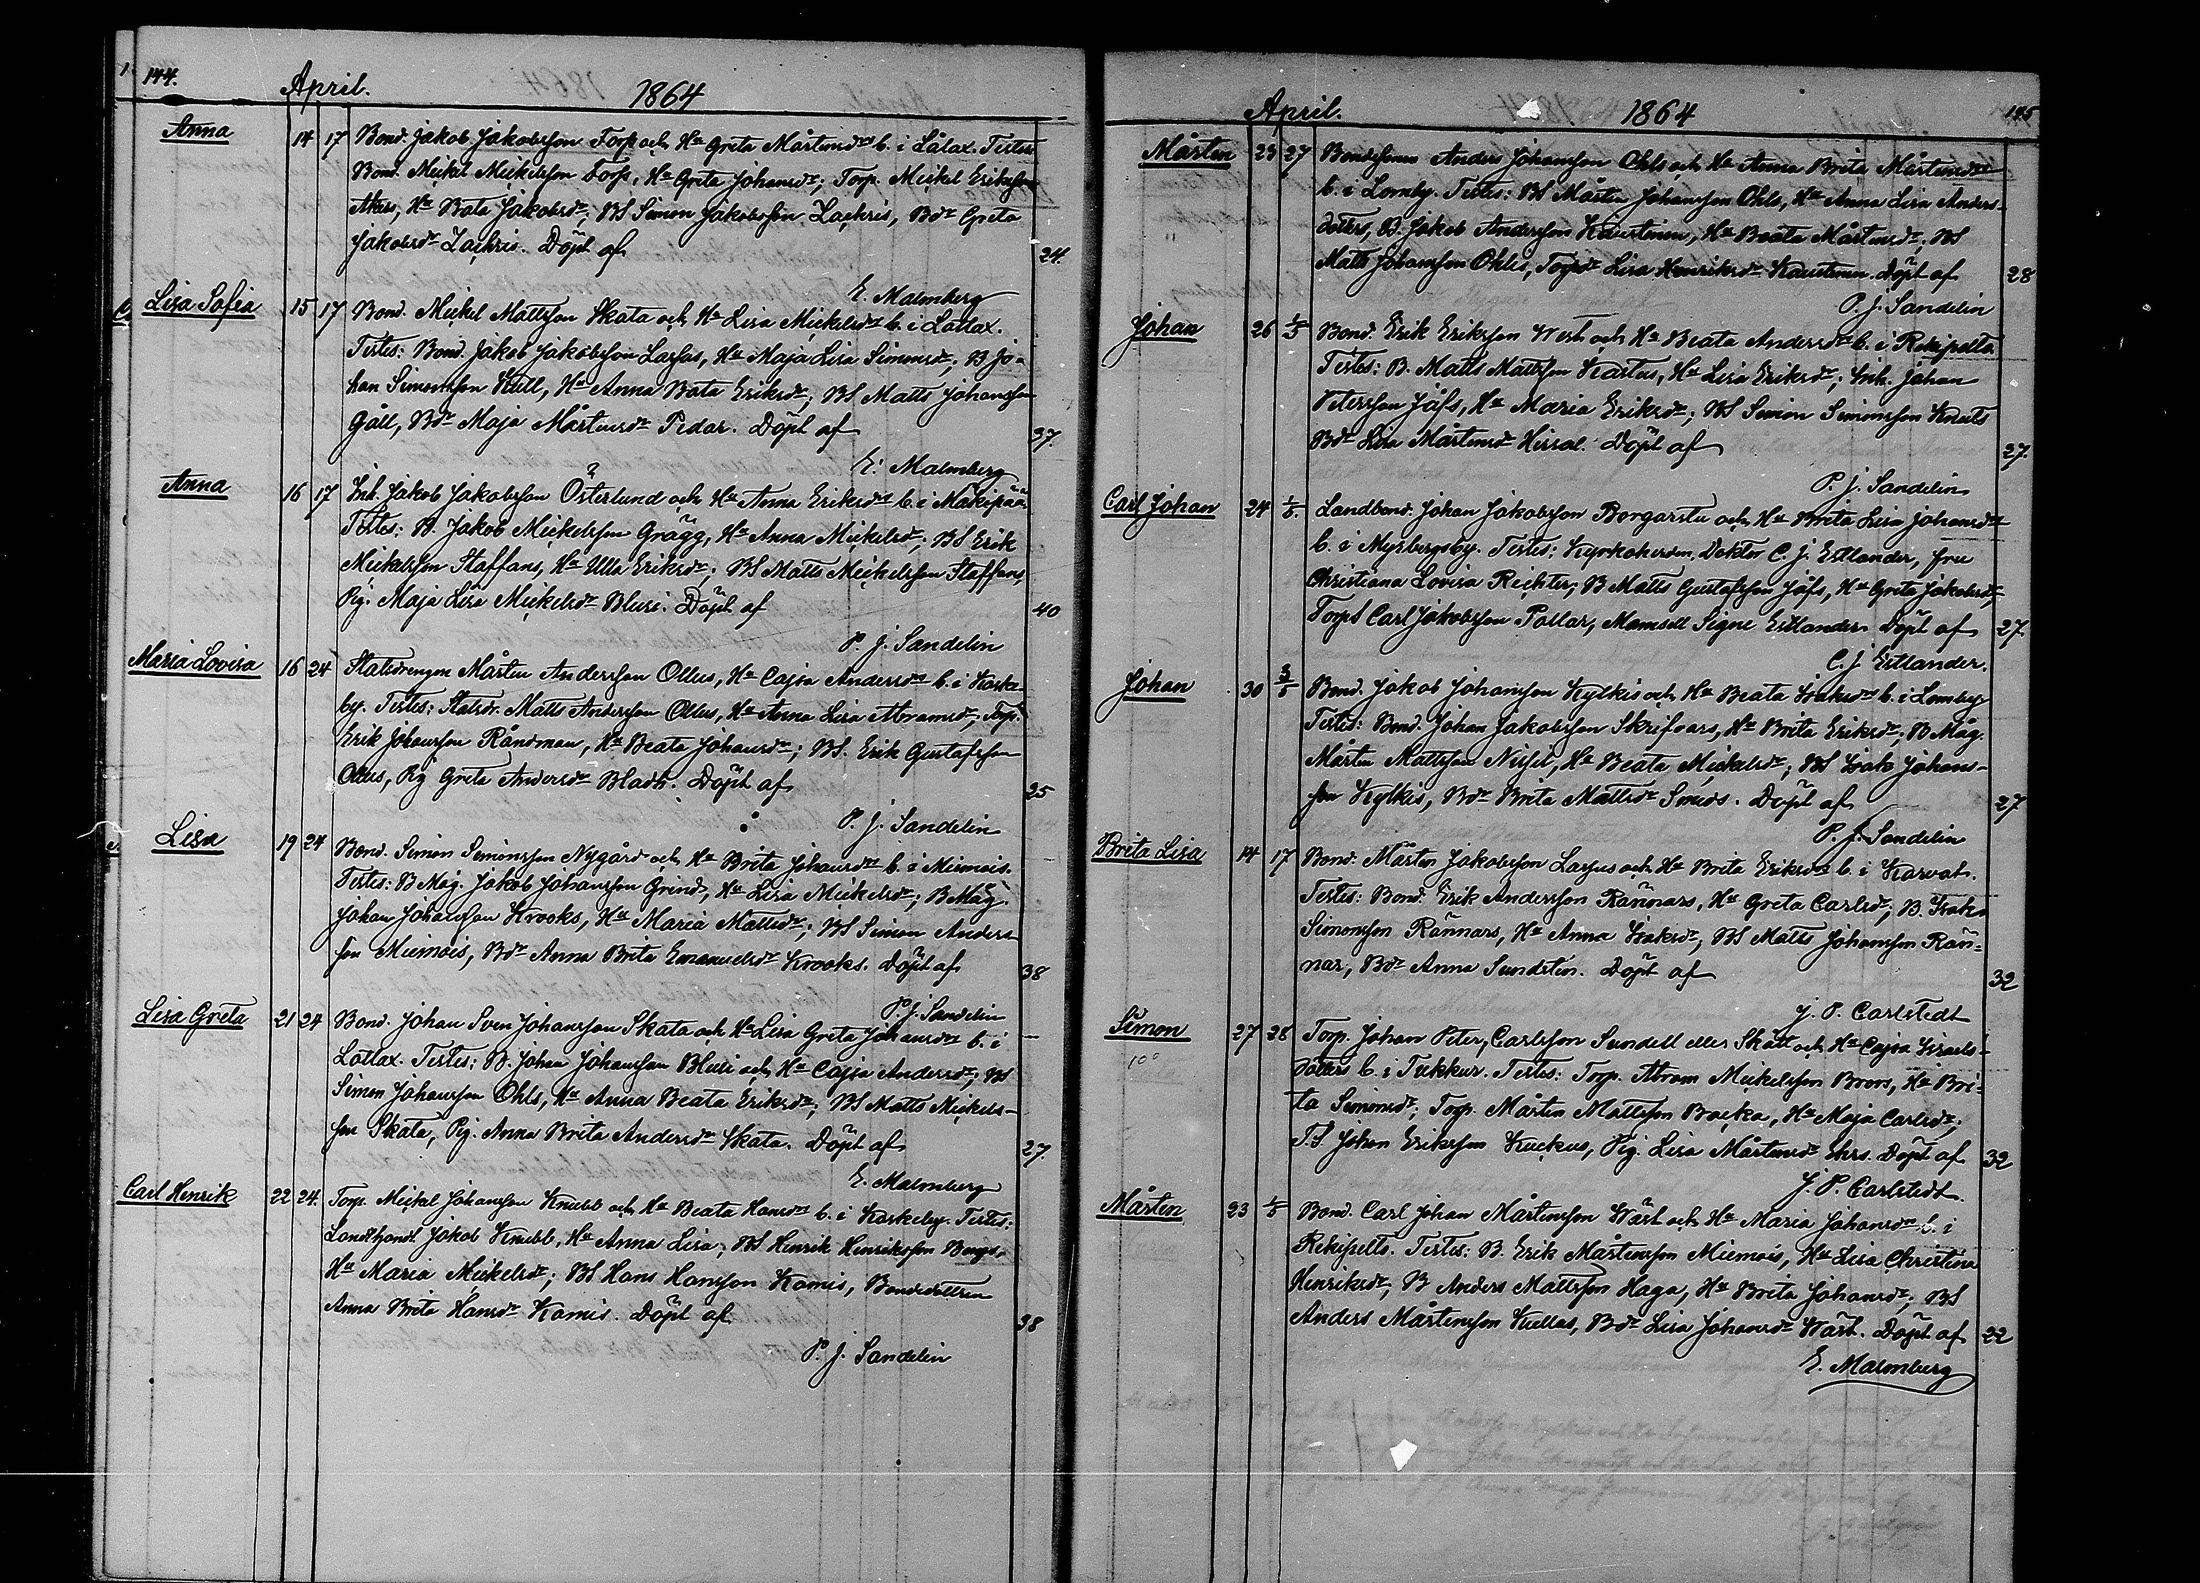 144.
April. 1864
Anna 14 17 Bond. Jakob Jakobsson Torp och Hu Greta Mårtensdr b. i Låtax. Testes
Bond. Mickel Mickelsson Torp, Hu Greta Johansdr; Torp. Mickel Eriksson
Akers, Hu Bata Jakobsdr; BS Simon Jakobsson Zachris, Bdr Greta
Jakobsdr Zachris. Döpt af 24.
E. Malmberg
Lisa Sofia 15 17 Bond. Mickel Mattsson Skata och Hu Lisa Mickelsdr b. i Låtlax.
Testes: Bond. Jakob Jakobsson Lassas, Hu Maja Lisa Simonsdr; B Jo-
han Simonsson Kull, Hu Anna Bata Eriksdr; BS Matts Johansson
Gåll, Bdr Maja Mårtensdr Pedar. Döpt af 37.
E. Malmberg
Anna 16 17 Inh. Jakob Jakobsson Österlund och Hu Anna Eriksdr b. i Mäkipää
Testes: B. Jakob Mickelsson Grägg, Hu Anna Mickelsdr; BS Erik
Mickelsson Staffans, Hu Ulla Eriksdr; BS Matts Mickelsson Staffans,
Pig. Maja Lisa Mickelsdr Blusi. Döpt af 40
P. J. Sandelin
Maria Lovisa 16 24 Statsdrengen Mårten Andersson Ollus, Hu Cajsa Andersdr b. i Kaske-
by. Testes: Statsdr. Matts Andersson Ollus, Hu Anna Lisa Abramsdr; Torp.
Erik Johansson Råndman, Hu Beata Johansdr; BS. Erik Gustafsson
Ollus, Pig Greta Andersdr Bladh. Döpt af 25
P. J. Sandelin
Lisa 19 24 Bond. Simon Simonsson Nygård och Hu Brita Johansdr b. i Miemois.
Testes: B Måg. Jakob Johansson Grind, Hu Lisa Mickelsdr; B Måg.
Johan Johansson Krooks, Hu Maria Mattsdr; BS Simon Anders-
son Miemois, Bdr Anna Brita Emanuelsdr Krooks. Döpt af 38
P. J. Sandelin
Lisa Greta 21 24 Bond. Johan Sven Johansson Skata och Hu Lisa Greta Johansdr b. i
Låtlax. Testes: B. Johan Johansson Blusi och Hu Cajsa Andersdr; BS
Simon Johansson Ohls, Hu Anna Beata Eriksdr; BS Matts Mickels-
son Skata, Pig. Anna Brita Andersdr Skata. Döpt af 27.
E. Malmberg
Carl Henrik 22 24. Torp. Mickel Johansson Knubb och Hu Beata Hansdr b. i Kaskeby. Testes:
Landthandl Jakob Knubb, Hu Anna Lisa; BS Henrik Henriksson Bengs,
Hu Maria Mickelsdr; BS Hans Hansson Kamis, Bondedottren
Anna Brita Hansdr Kamis. Döpt af 38
P. J. Sandelin
April. 1864 145
Mårten 23 27 Bondesonen Anders Johansson Ohls och Hu Anna Brita Mårtensdr
b. i Lomby. Testes: BS Mårten Johansson Ohls, Hu Anna Lisa Anders-
dotter, B. Jakob Andersson Kaustinen, Hu Beata Mårtensdr; BS
Matts Johansson Ohls, Torpdr Lisa Henriksdr Kaustinen. Döpt af 28
P. J. Sandelin
Johan 26 1/5 Bond. Erik Eriksson West och Hu Beata Andersdr b. i Rekipelto.
Testes: B. Matts Mattsson Kastus, Hu Lisa Eriksdr; Inh. Johan
Petersson Jåfs, Hu Maria Eriksdr; BS Simon Simonsson Knuts
Bdr Lisa Mårtensdr Hirsal. Döpt af 27.
P. J. Sandelin
Carl Johan 24 1/5. Landbond. Johan Jakobsson Borgarstu och Hu Brita Lisa Johansdr
b. i Myrbergsby. Testes: Kyrkoherden, Doktor C. J. Estlander, fru
Christiana Lovisa Richter; B Matts Gustafsson Jåfs, Hu Greta Jakobsdr;
TorpS Carl Jakobsson Pollar, Mamsell Signe Estlander. Döpt af 27
C. J. Estlander.
Johan 30 3/5 Bond. Jakob Johansson Kylkis och Hu Beata Isaksdr b. i Lomby
Testes: Bond. Johan Jakobsson Skrifvars, Hu Brita Eriksdr; B Måg.
Mårten Mattsson Nissil, Hu Beata Mickelsdr; BS Isak Johans-
son Kylkis, Bdr Brita Mattsdr Smeds. Döpt af 27
P. J. Sandelin
Brita Lisa 14 17 Bond. Mårten Jakobsson Lassus och Hu Brita Eriksdr b. i Karvat.
Testes: Bond. Erik Andersson Rännars, Hu Greta Carlsdr; B. Isak
Simonsson Rännars, Hu Anna Isaksdr; BS Matts Johansson Rän-
nar, Bdr Anna Sundelin. Döpt af 32
J. P. Carlstedt
Simon 27 28 Torp. Johan Peter, Carlsson Sundell eller Skått och Hu Cajsa Israels-
10° dotter b. i Tukkur. Testes: Torp. Abram Mickelsson Broors, Hu Bri-
ta Simonsdr; Torp. Mårten Mattsson Backa, Hu Maja Carlsdr;
T.S. Johan Eriksson Kuckus, Pig. Lisa Mårtensdr Ehrs. Döpt af 32
J. P. Carlstedt.
Mårten 23 1/5 Bond. Carl Johan Mårtensson Wärt och Hu Maria Johansdr b. i
Rekipelto. Testes: B. Erik Mårtensson Miemois, Hu Lisa Christina
Henriksdr; B Anders Mattsson Haga, Hu Brita Johansdr; BS
Anders Mårtensson Kullas, Bdr Lisa Johansdr Wärt. Döpt af 22
E. Malmberg